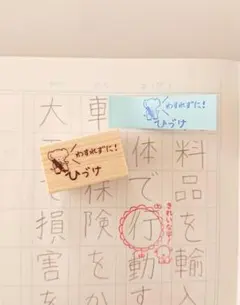 わすれずに！
ひづけ
わすれずに！
ひづけ
料品を輸入
体で行動す
きれいな字
車
保険をか
大
損害を